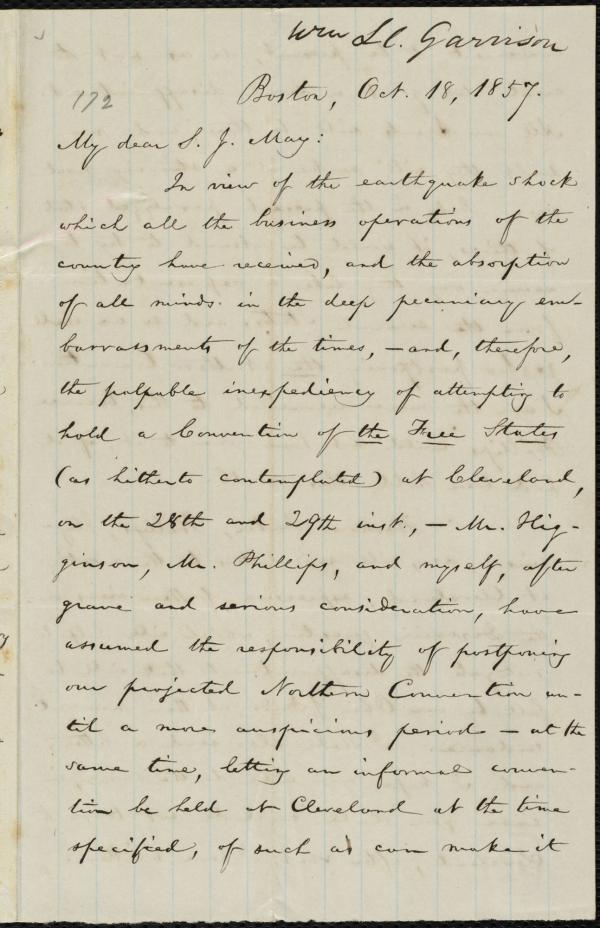 Wm L. Garrison
172
Boston, Oct. 18, 1857.
My dear S. J. May:
In view of the earthquake shock
which all the business operations of the
country have received, and the absorption
of all minds in the deep pecuniary em-
barrassments of the times, — and, therefore,
the palpable inexpediency of attempting to
hold a Convention of the Free States
(as hitherto contemplated) at Cleveland,
on the 28th and 29th inst., — Mr. Hig-
ginson, Mr. Phillips, and myself, after
grave and serious consideration, have
assumed the responsibility of postponing
our projected Northern Convention un-
til a more auspicious period — at the
same time, letting an informal conven-
tion be held at Cleveland at the time
specified, of such as can make it